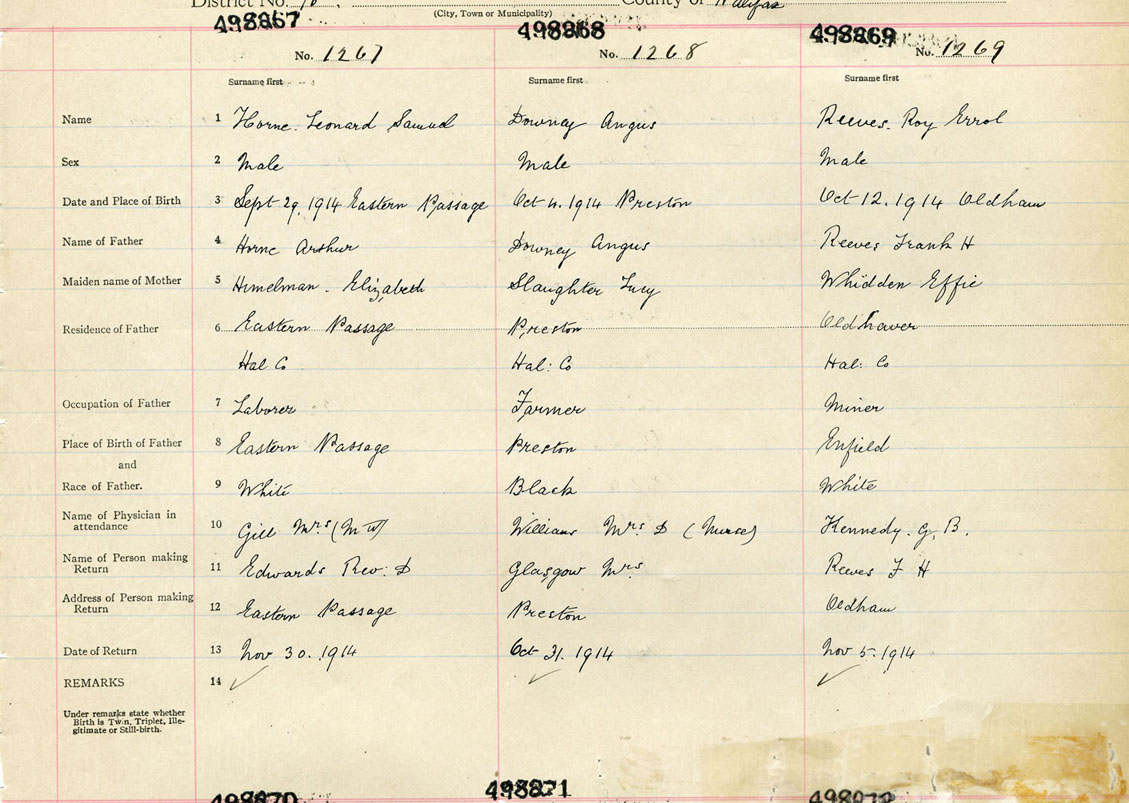 District No. County of Halifax
(City, Town or Municipality)
498867 498868 498869
No. 1267 No. 1268 No. 1269
Surname first Surname first Surname first
Name 1 Horne. Leonard Samuel Downey Angus Reeves. Roy Errol
Sex 2 Male Male Male
Date and Place of Birth 3 Sept 29, 1914 Eastern Passage Oct 4. 1914 Preston Oct 12. 1914 Oldham
Name of Father 4 Horne Arthur Downey Angus Reeves Frank H
Maiden name of Mother 5 Himelman. Elizabeth Slaughter Lucy Whidden Effie
Residence of Father 6 Eastern Passage Preston
Hal Co Hal: Co Hal: Co
Occupation of Father 7 Laborer Farmer Miner
Place of Birth of Father 8 Eastern Passage Preston Enfield
and
Race of Father. 9 White Black White
Name of Physician in
attendance 10 Gill Mrs (M W) Williams Mrs D (Nurse) Kennedy. G. B.
Name of Person making
Return 11 Edwards Rev: D Glasgow Mrs Reeves F H
Address of Person making
Return 12 Eastern Passage Preston Oldham
Date of Return 13 Nov 30. 1914 Oct 31. 1914 Nov 5. 1914
REMARKS 14 ✓ ✓ ✓
Under remarks state whether
Birth is Twin, Triplet, Ille-
gitimate or Still-birth.
498870 498871 498872